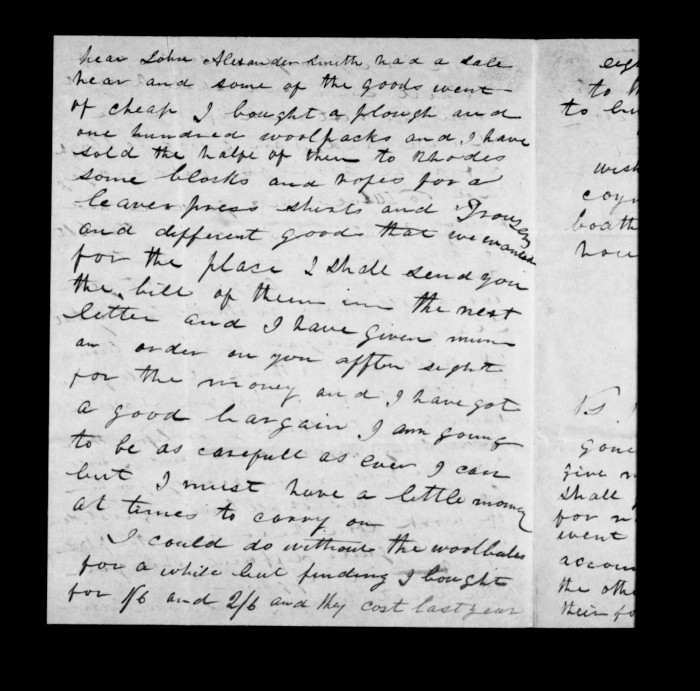 hear John Alexander Smith had a sale
hear and some of the goods went
of cheap I bought a plough and
one hundred woolpacks and I have
sold the halfe of them to Rhodes
some blocks and ropes for a
leaver press shirts and Trousers
and different goods that we wanted
for the place I shall send you
the bill of them in the next
letter and I have given
an order on you after sight
for the money and I have got
a good bargain I am going
to be as carefull as ever I can
but I must have a little money
at times to carry on
I could do without the woolbales
for a while but finding I bought
for 1/6 and 2/6 and they cost last year
to
to
wish
boath
P.S.
gone
give
shall
for
went
accoun
the othe
their fo